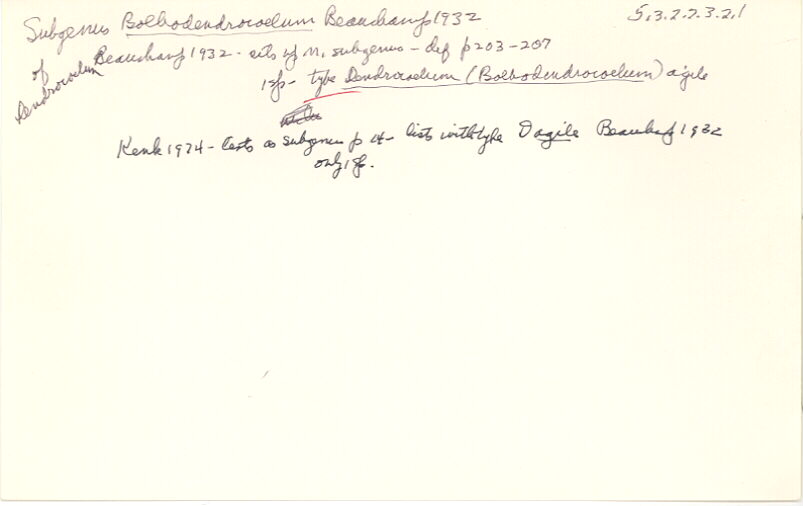 Subgenus Bolbodendrocoelum Beauchamp 1932
5.3.2.2.3.2.1
of Dendrocoelum
Beauchamp 1932 - as n. subgenus - def p 203-207
1 sp - type Dendrocoelum (Bolbodendrocoelum) agile
Kenk 1974 - lists as subgenus p 4 - lists with type D agile Beauchamp 1932
only 1 sp.